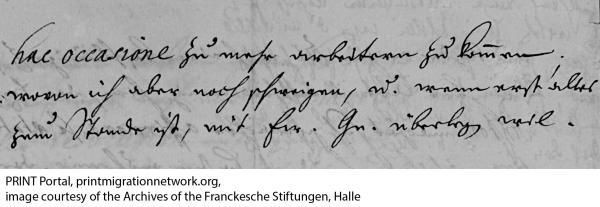 hac occasione zu mehr arbeitern zu kom̄en,
wovon ich aber noch schweigen, u. wenn erst alles
zum Stande ist, mit Ew. Gn. überlegen wil.
PRINT Portal, printmigrationnetwork.org,
image courtesy of the Archives of the Franckesche Stiftungen, Halle